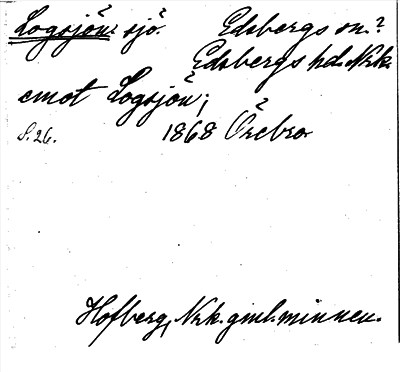 Logsjön? sjö? Edsbergs sn.?
Edsbergs hd. Nrk.
emot Logsjön;
S. 26. 1868 Örebro
Hofberg, Nrk. gml. minnen.